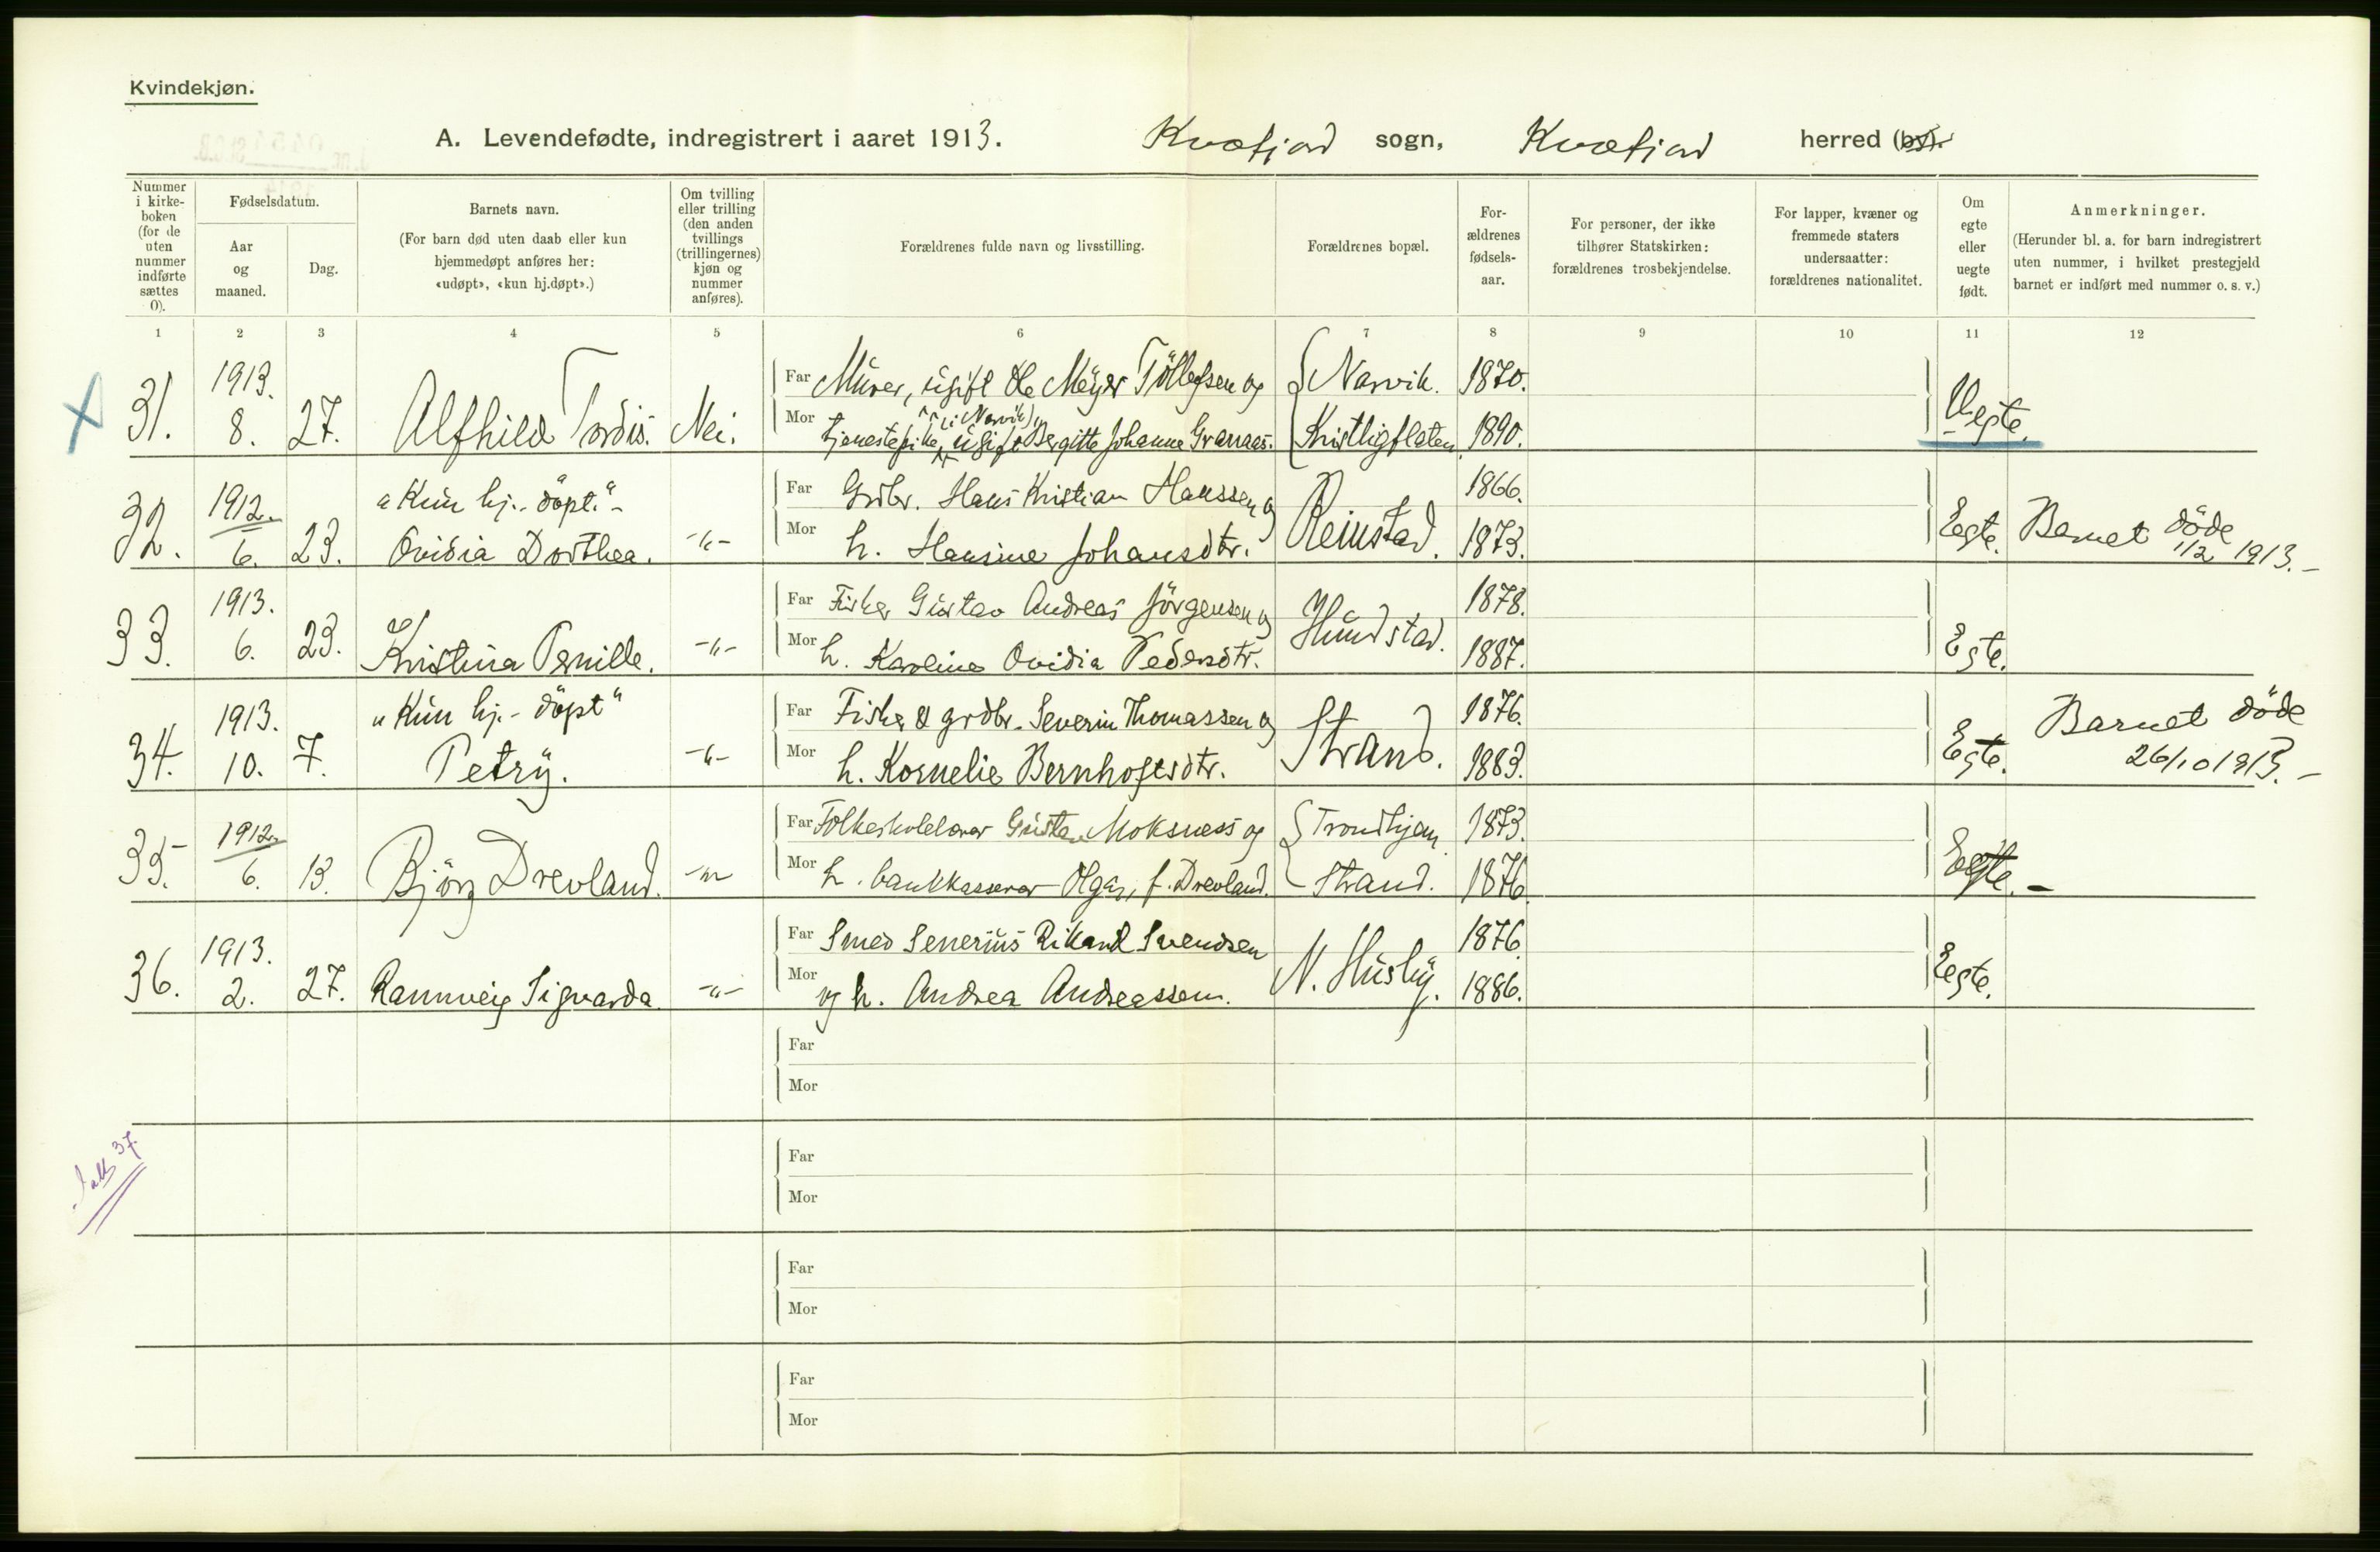 Kvindekjøn.
A. Levendefødte, indregistrert i aaret 1913. Kvæfjord sogn, Kvæfjord herred (by).
Nummer i kirke-boken (for de uten nummer indførte sættes 0).
Fødselsdatum.
Aar og maaned.
Dag.
Barnets navn.
(For barn død uten daab eller kun hjemmedøpt anføres her: «udøpt», «kun hj.døpt».)
Om tvilling eller trilling (den anden tvillings (trillingernes) kjøn og nummer anføres).
Forældrenes fulde navn og livsstilling.
Forældrenes bopæl.
For-ældrenes fødsels-aar.
For personer, der ikke tilhører Statskirken: forældrenes trosbekjendelse.
For lapper, kvæner og fremmede staters undersaatter: forældrenes nationalitet.
Om egte eller uegte født.
Anmerkninger.
(Herunder bl. a. for barn indregistrert uten nummer, i hvilket prestegjeld barnet er indført med nummer o. s. v.)
1 2 3 4 5 6 7 8 9 10 11 12
X 31. 1913. 8. 27. Alfhild Tordis. Nei.
Far Murer, ugift Ole Meyer Töllefsen og Narvik. 1870.
Mor tjenestepike (i Narvik), ugift Bergitte Johanne Grannæs. Kristligflaten 1890.
Uegte.
32. 1912. 6. 23. "Kun hj.-döpt."- Ovidia Dorthea. -"-
Far Grdbr. Hans Kristian Hanssen og Reinstad. 1866.
Mor h. Hansine Johansdtr. 1873.
Egte. Barnet döde 1/2 1913.-
33. 1913. 6. 23. Kristina Pernille. -"-
Far Fisker Gustav Andreas Jörgensen og Hundstad. 1878.
Mor h. Karoline Ovidia Pedersdtr. 1887.
Egte.
34. 1913. 10. 7. "Kun hj.-döpt" Petry. -"-
Far Fisker & grdbr. Severin Thomassen og Strand. 1876.
Mor h. Kornelie Bernhoftsdtr. 1883.
Egte. Barnet döde 26/10 1913.-
35. 1912. 6. 13. Björg Drevland. -"-
Far Folkeskolelærer Gustav Moksness og Trondhjem 1873.
Mor h. bankkasserer Olga, f. Drevland. Strand. 1876
Egte.-
36. 1913. 2. 27. Rannveig Sigvarda. -"-
Far Smed Senerius Rikard Svendsen N. Husby. 1876.
Mor og h. Andrea Andreassen. 1886.
Egte.
Far
Mor
37.
Far
Mor
Far
Mor
Far
Mor